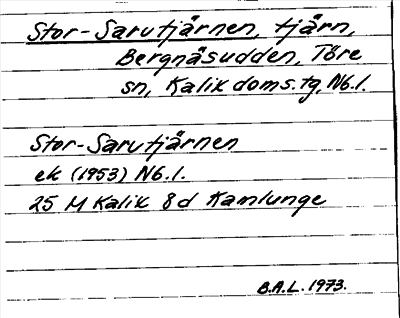 Stor-Sarutjärnen, tjärn,
Bergnäsudden, Töre
sn, Kalix doms.tg, Nb.l.
Stor-Sarutjärnen
ek (1953) Nb.l.
25 M Kalix 8d Kamlunge
B.A.L. 1973.